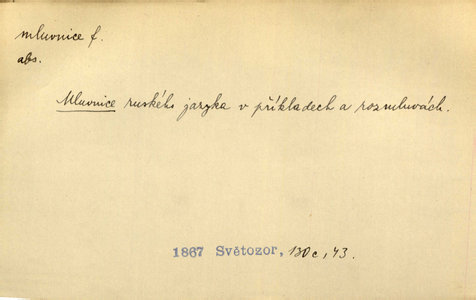 mluvnice f.
abs.
Mluvnice ruského jazyka v příkladech a rozmluvách.
1867 Světozor, 130c, 43.